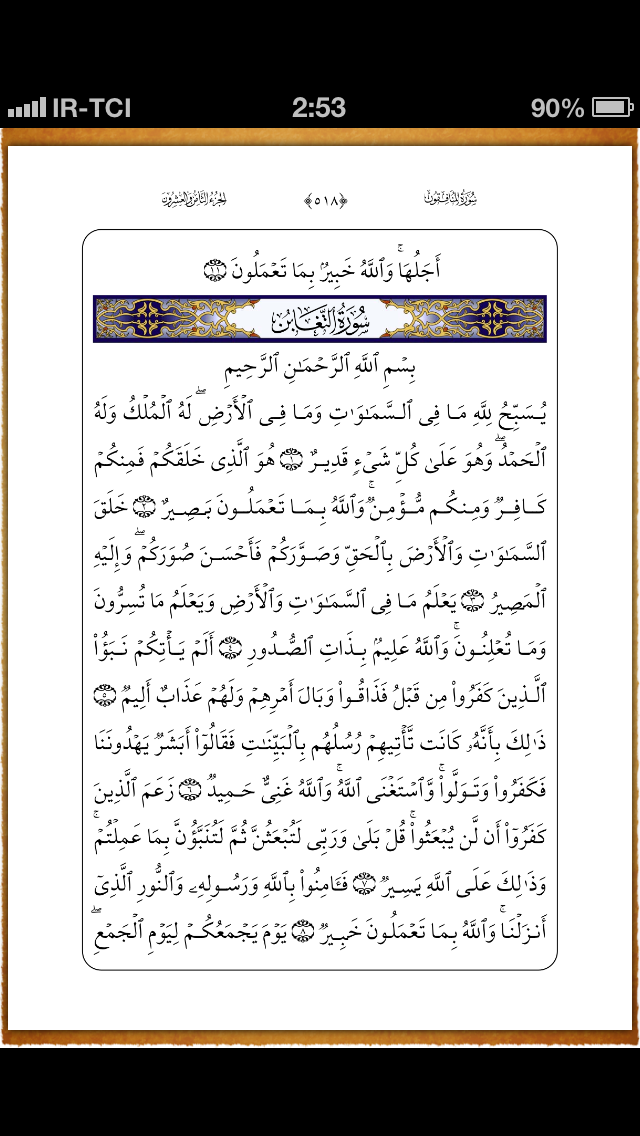 IR-TCI 2:53 90%
سُورَةُ المُنَافِقُون ﴿٥١٨﴾ الجُزءُ الثَّامِنُ وَالعِشرُون
أَجَلُهَاۚ وَٱللَّهُ خَبِيرُۢ بِمَا تَعۡمَلُونَ ١١
سُورَةُ التَّغَابُن
بِسۡمِ ٱللَّهِ ٱلرَّحۡمَٰنِ ٱلرَّحِيمِ
يُسَبِّحُ لِلَّهِ مَا فِى ٱلسَّمَٰوَٰتِ وَمَا فِى ٱلۡأَرۡضِۖ لَهُ ٱلۡمُلۡكُ وَلَهُ
ٱلۡحَمۡدُۖ وَهُوَ عَلَىٰ كُلِّ شَىۡءٍ قَدِيرٌ ١ هُوَ ٱلَّذِى خَلَقَكُمۡ فَمِنكُمۡ
كَافِرٌ وَمِنكُم مُّؤۡمِنٌۚ وَٱللَّهُ بِمَا تَعۡمَلُونَ بَصِيرٌ ٢ خَلَقَ
ٱلسَّمَٰوَٰتِ وَٱلۡأَرۡضَ بِٱلۡحَقِّ وَصَوَّرَكُمۡ فَأَحۡسَنَ صُوَرَكُمۡۖ وَإِلَيۡهِ
ٱلۡمَصِيرُ ٣ يَعۡلَمُ مَا فِى ٱلسَّمَٰوَٰتِ وَٱلۡأَرۡضِ وَيَعۡلَمُ مَا تُسِرُّونَ
وَمَا تُعۡلِنُونَۚ وَٱللَّهُ عَلِيمُۢ بِذَاتِ ٱلصُّدُورِ ٤ أَلَمۡ يَأۡتِكُمۡ نَبَؤُا۟
ٱلَّذِينَ كَفَرُوا۟ مِن قَبۡلُ فَذَاقُوا۟ وَبَالَ أَمۡرِهِمۡ وَلَهُمۡ عَذَابٌ أَلِيمٌ ٥
ذَٰلِكَ بِأَنَّهُۥ كَانَت تَّأۡتِيهِمۡ رُسُلُهُم بِٱلۡبَيِّنَٰتِ فَقَالُوٓا۟ أَبَشَرٌ يَهۡدُونَنَا
فَكَفَرُوا۟ وَتَوَلَّوا۟ۚ وَّٱسۡتَغۡنَى ٱللَّهُۚ وَٱللَّهُ غَنِىٌّ حَمِيدٌ ٦ زَعَمَ ٱلَّذِينَ
كَفَرُوٓا۟ أَن لَّن يُبۡعَثُوا۟ۚ قُلۡ بَلَىٰ وَرَبِّى لَتُبۡعَثُنَّ ثُمَّ لَتُنَبَّؤُنَّ بِمَا عَمِلۡتُمۡۚ
وَذَٰلِكَ عَلَى ٱللَّهِ يَسِيرٌ ٧ فَـَٔامِنُوا۟ بِٱللَّهِ وَرَسُولِهِۦ وَٱلنُّورِ ٱلَّذِىٓ
أَنزَلۡنَاۚ وَٱللَّهُ بِمَا تَعۡمَلُونَ خَبِيرٌ ٨ يَوۡمَ يَجۡمَعُكُمۡ لِيَوۡمِ ٱلۡجَمۡعِۖ